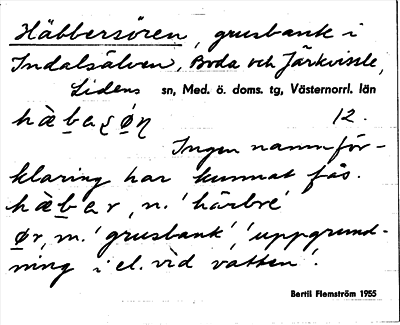 Häbbersören, grusbank i
Indalsälven, Boda och Järkvissle,
Lidens sn, Med. ö. doms. tg, Västernorrl. län
hàb̲aʂø̲ɳ 12.
Ingen namnför-
klaring har kunnat fås.
hàb̲ar, n. 'härbre'
ø̲r, m. 'grusbank', 'uppgrund-
ning i el. vid vatten'.
Bertil Flemström 1955